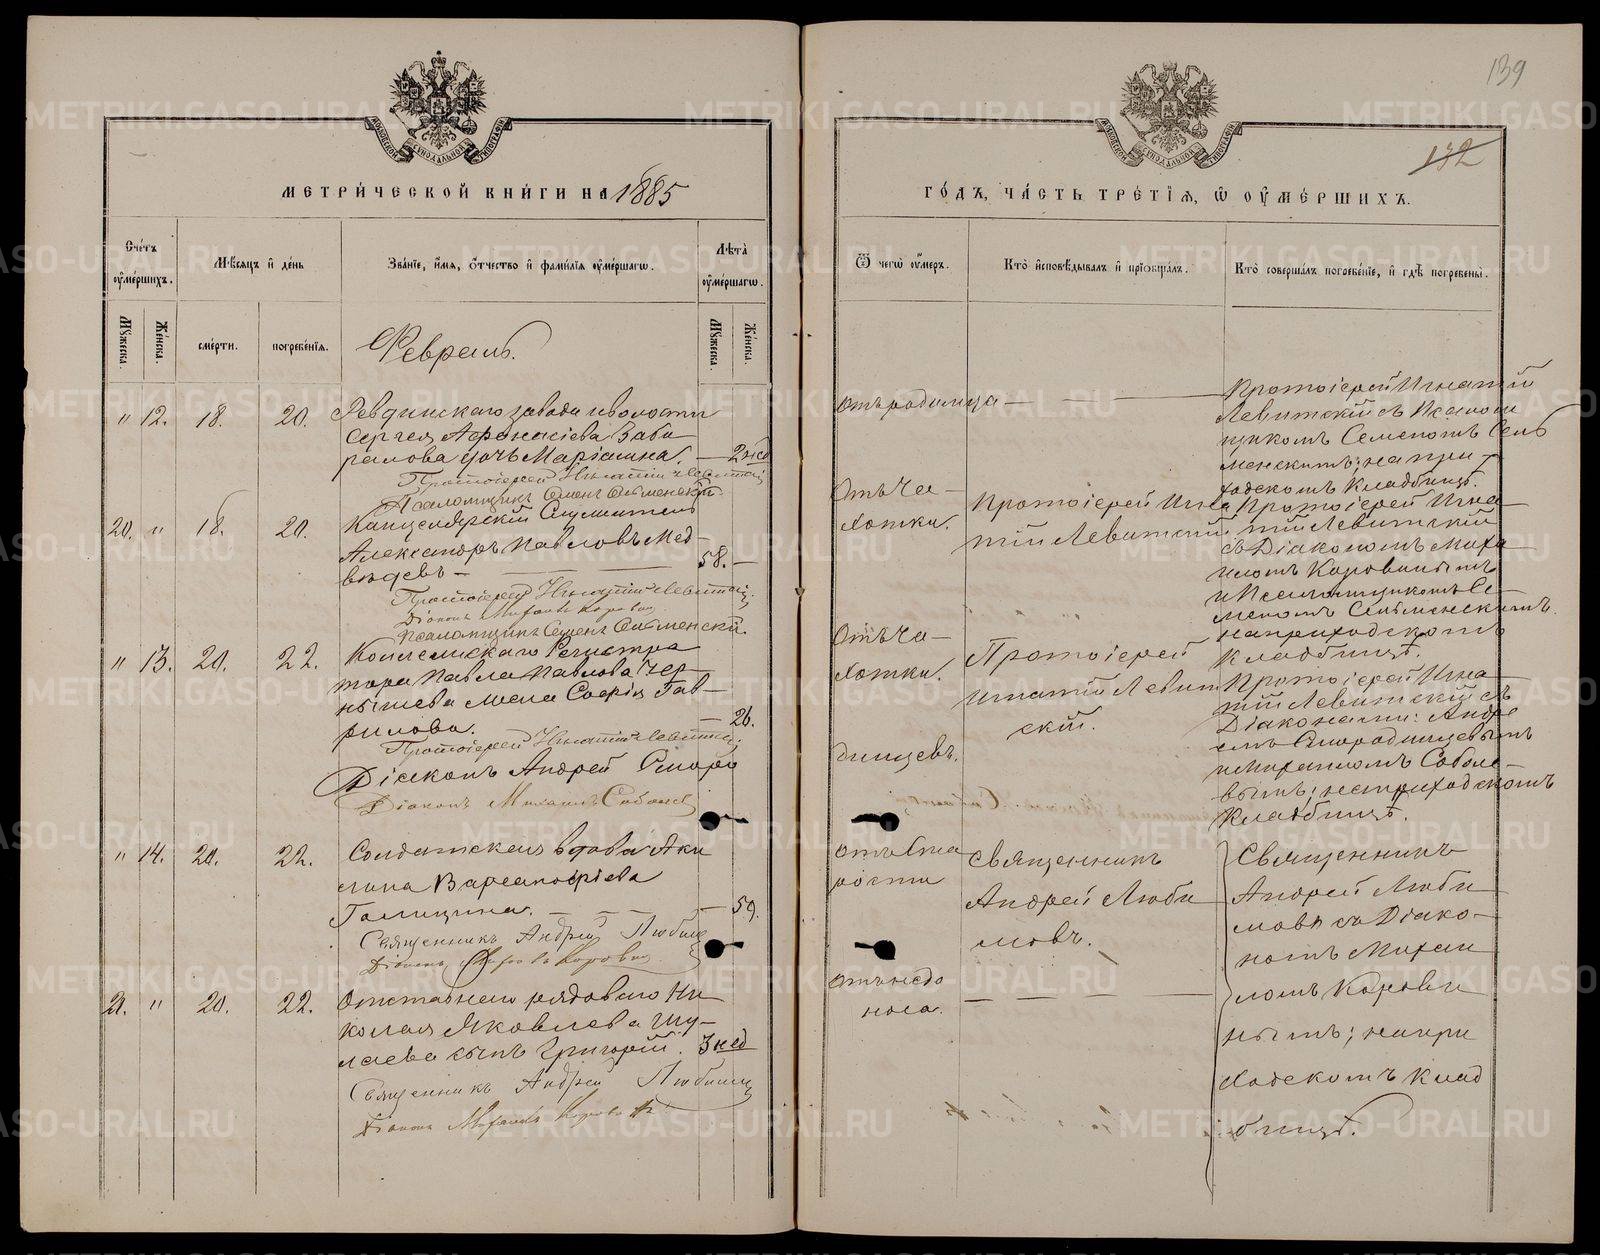 139
132
МЕТРИ́ЧЕСКОЙ КНИ́ГИ НА 1885
ГО́ДЪ, ЧА́СТЬ ТРЕ́ТІЯ, Ѿ ОУ҆МЕ́РШИХЪ.
Сче́тъ оу҆ме́ршихъ.
Мѣ́сяцъ и҆ де́нь
Зва́ніе, и҆́мя, о҆́тчество и҆ фами́лія оу҆ме́ршагѡ.
Лѣ́та̀ оу҆ме́ршагѡ.
Ѿ чегѡ̀ оу҆́меръ.
Кто̀ и҆сповѣ́дывалъ и҆ пріѡбща́лъ.
Кто̀ соверша́лъ погребе́ніе, и҆ гдѣ̀ погребены̀.
Му́жеска.
Же́нска.
сме́рти.
погребе́нія.
Му́жеска.
Же́нска.
Февраль.
" 12. 18. 20. Ревдинскаго завода и волости
Сергея Афонасіева Заби
ралова дочь Маріамна. — 2 нед
Протоіерей Игнатій Левитскій
Псаломщикъ Семенъ Сельменскій
Отъ родимца — —
Протоіерей Игнатій
Левитскій съ Псалом
щикомъ Семеномъ Сель
менскимъ; на при-
ходскомъ Кладбищѣ.
20. " 18. 20. Канцелярскій Служитель
Александръ Павловъ Мед-
вѣдевъ — 58. —
Протоіерей Игнатій Левитскій
Діаконъ Михаилъ Коровин
Псаломщикъ Семенъ Сельменскій.
Отъ Ча-
хотки.
Протоіерей Игна
тій Левитскій
Протоіерей Игна-
тій Левитскій
съ Діакономъ Миха
иломъ Коровинымъ
и Псаломщикомъ Се-
меномъ Сельменскимъ
на приходскомъ
Кладбищѣ.
" 13. 20. 22. Коллежскаго Регистра
тора Павла Павлова Чер-
нышева жена Софія Гав-
рилова. — 26.
Протоіерей Игнатій Левитскій
Діаконъ Андрей Смор
Діаконъ Михаилъ Соболев
Отъ Ча-
хотки.
Протоіерей
Игнатій Левит
скій.
Протоіерей Игна-
тій Левитскій съ
Діаконами: Андре
емъ Смородинцевымъ
и Михаиломъ Соболе-
вымъ; на приходскомъ
Кладбищѣ.
" 14. 20. 22. Солдатская вдова Аки
лина Варсанофіева
Голицина. — 59.
Священникъ Андрей Любимов
Діаконъ Михаилъ Коровин
Отъ Ста
рости
Священникъ
Андрей Люби
мовъ.
Священникъ
Андрей Люби
мовъ съ Діако-
номъ Михаи
ломъ Корови
нымъ; на при
ходскомъ Клад
бищѣ.
21. " 20. 22. Отставнаго рядоваго Ни
колая Яковлева Шу-
лаева сынъ Григорій. 3 нед
Священникъ Андрей Любимов
Діаконъ Михаилъ Коровин
Отъ недо
носа. — — —